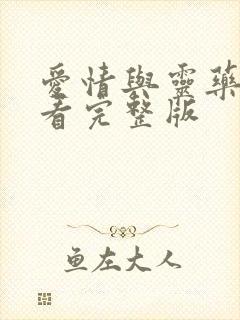 愛情與靈藥
看完整版
鱼左大人